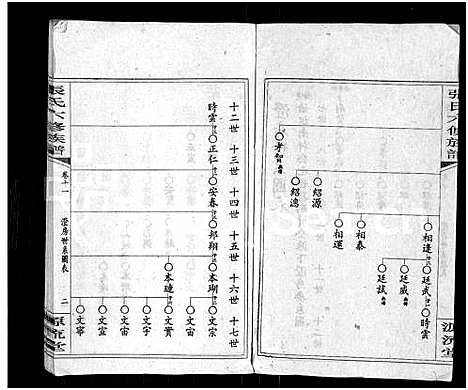 張氏六修族譜
孝智
紹源
紹濂
相達
相泰
相運
廷武
廷威
廷試
時雲
十二世
十三世
十四世
十五世
十六世
十七世
時雲
正仁
安春
邦翔
本瑚
本璉
文宗
文宙
文實
文宇
文宙
文室
文寧
張氏六修族譜
卷十一
澄房世系圖表
二
源流堂